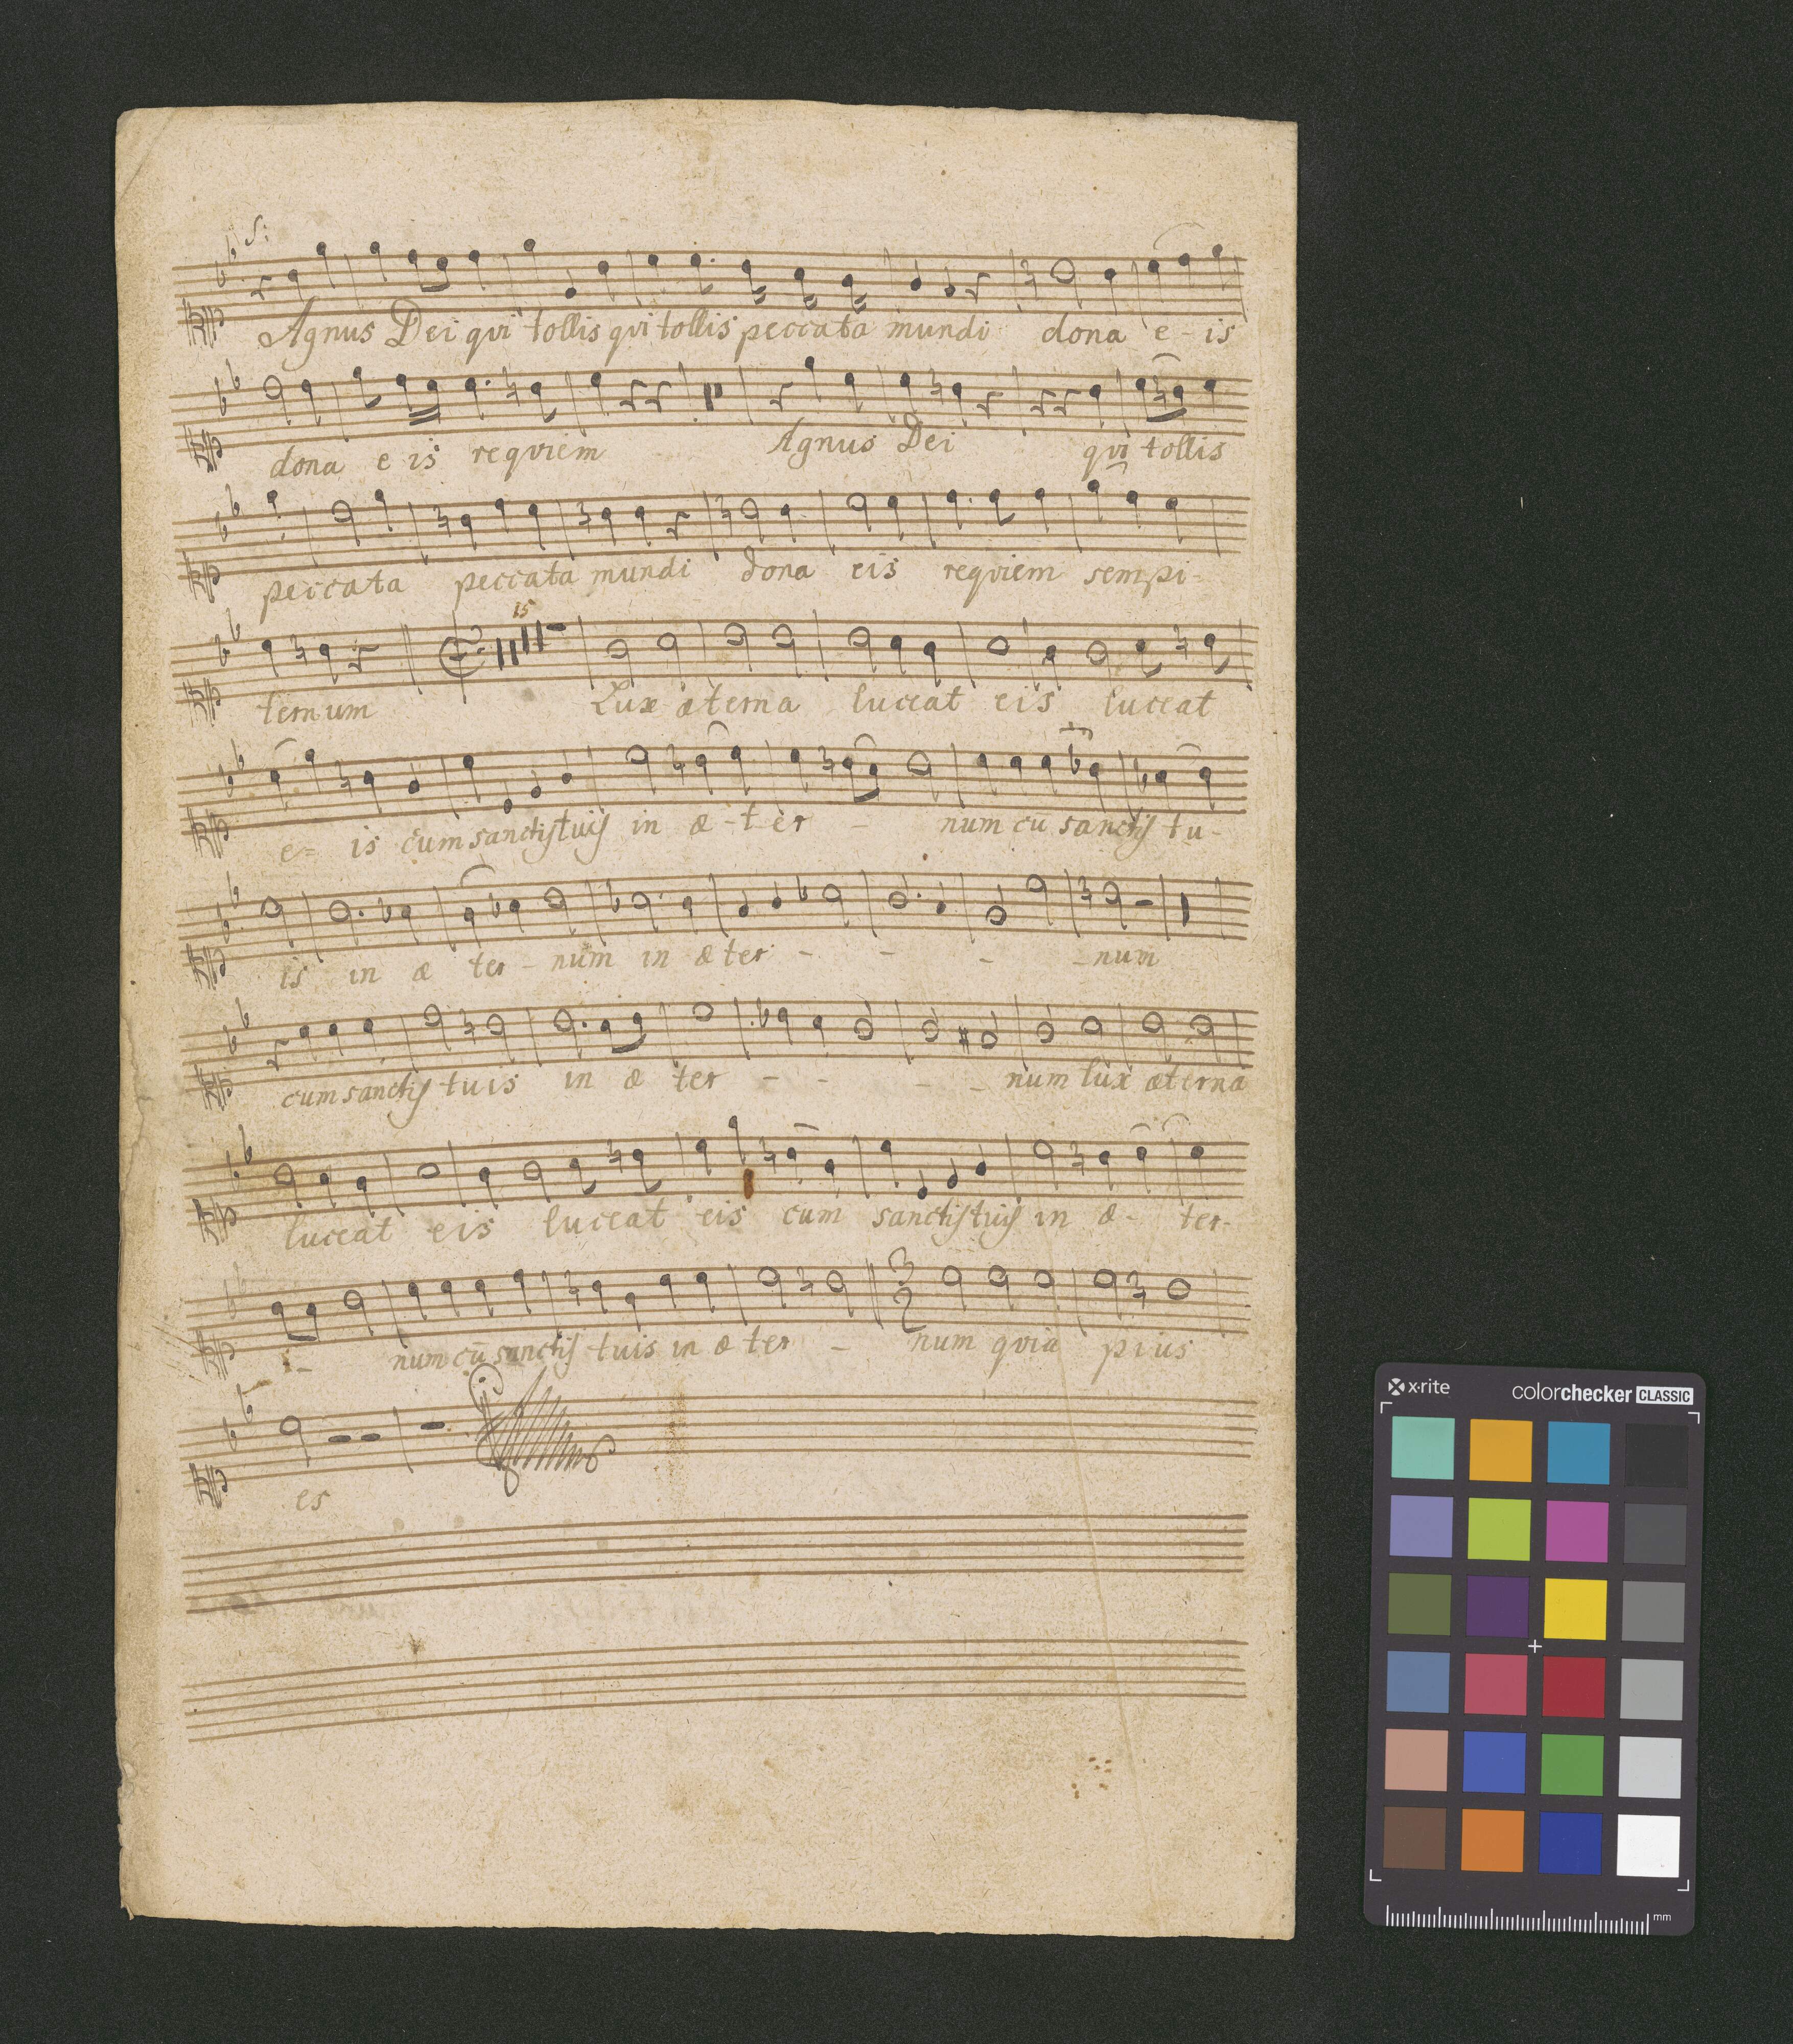 S:
Agnus Dei qvi tollis qvi tollis peccata mundi dona e - is
dona e is reqviem Agnus Dei qvi tollis
peccata peccata mundi dona eis reqviem sempi-
15
ternum Lux æterna luceat eis luceat
e- is cum sanctis tuis in æ - ter - num cū sanctis tu-
is in æ ter - num in æ ter - - - - num
cum sanctis tuis in æ ter - - - - num lux æterna
luceat eis luceat eis cum sanctis tuis in æ - ter-
3
2
- num cū sanctis tuis in æ ter - num qvia pius
es
x·rite colorchecker CLASSIC
mm